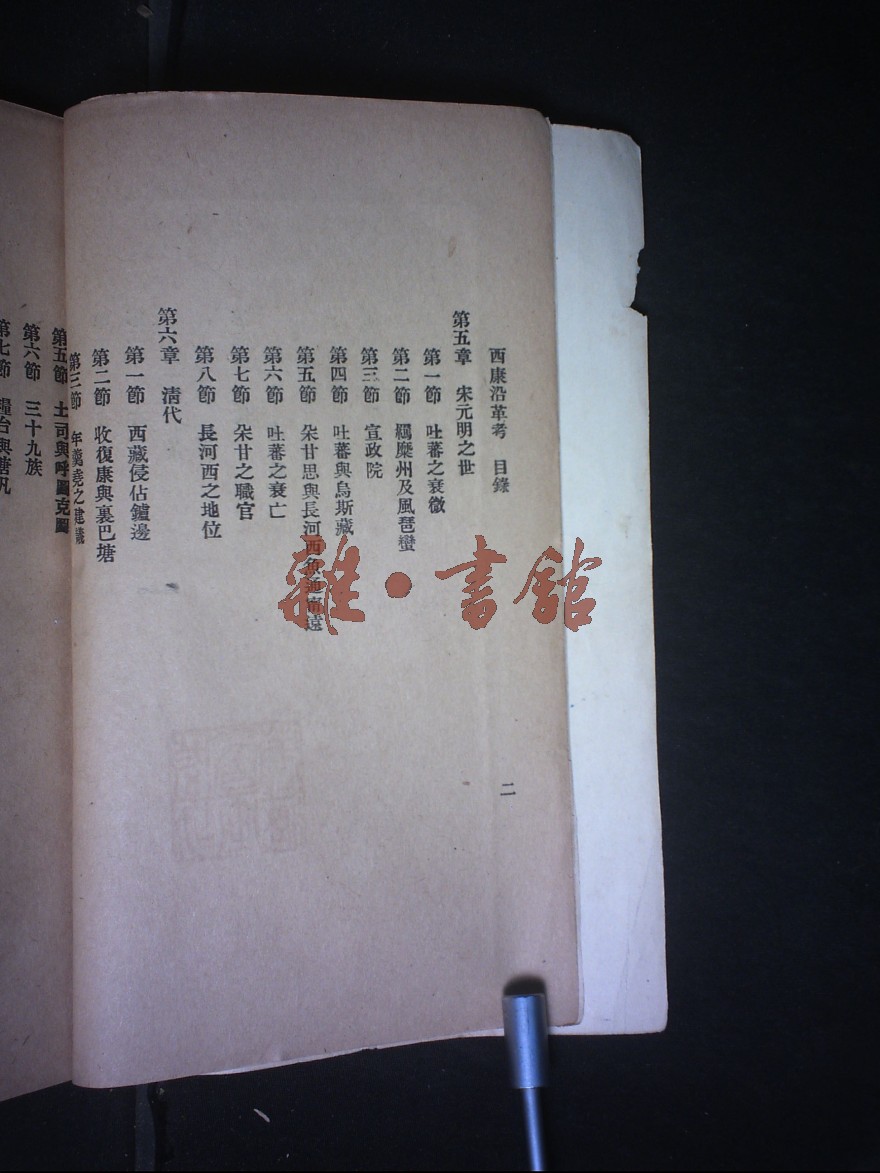 西康沿革考 目錄
二
第五章 宋元明之世
第一節 吐蕃之衰微
第二節 羈縻州及風琶蠻
第三節 宣政院
第四節 吐蕃與烏斯藏
第五節 朵甘思與長河西魚通甯遠
第六節 吐蕃之衰亡
第七節 朵甘之職官
第八節 長河西之地位
第六章 清代
第一節 西藏侵佔鑪邊
第二節 收復康與裏巴塘
第三節 年羹堯之建議
第五節 土司與呼圖克圖
第六節 三十九族
第七節 糧台與塘汛
雜·書館